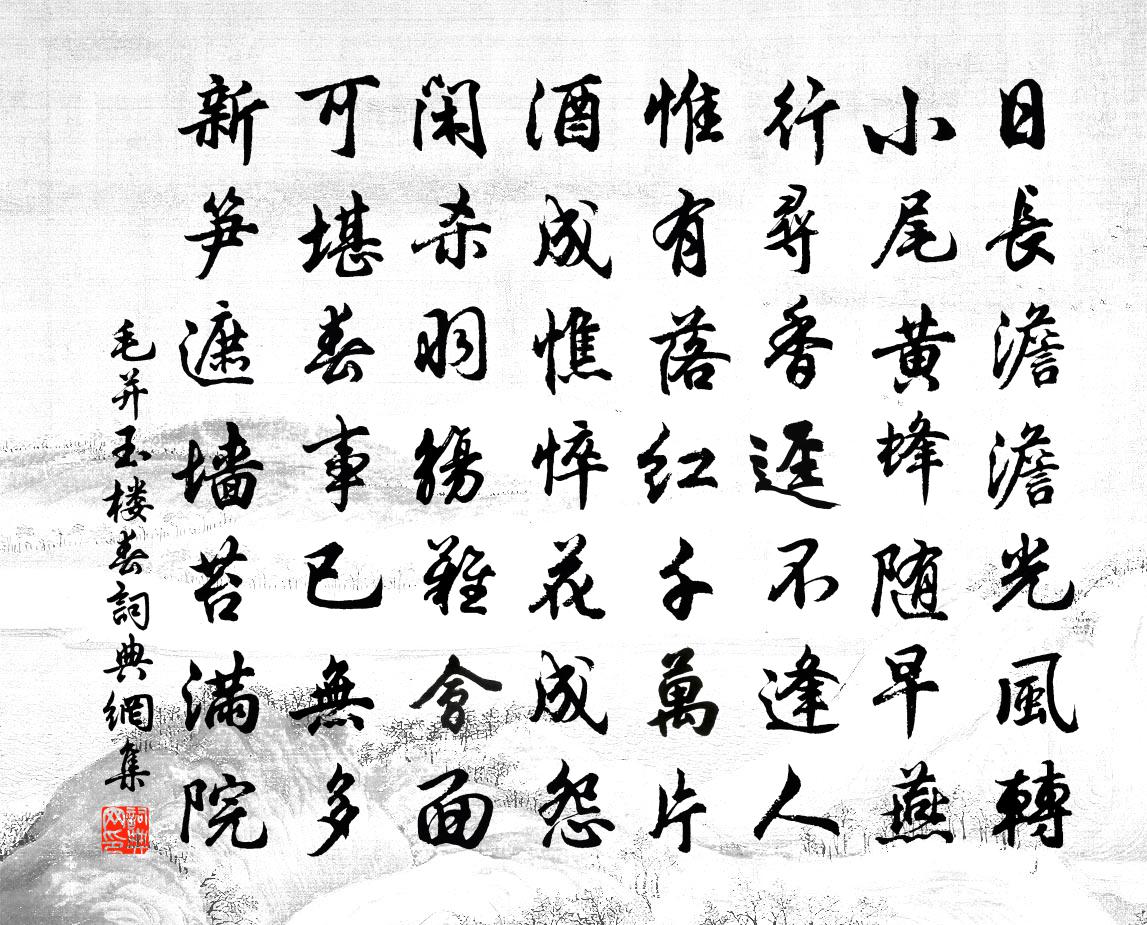 日長澹澹光風轉
小尾黃蜂随早燕
行尋香逕不逢人
惟有落紅千萬片
酒成憔悴花成怨
闲杀羽觴難會面
可堪春事已無多
新笋遮墙苔满院
毛并玉楼春詞典網集